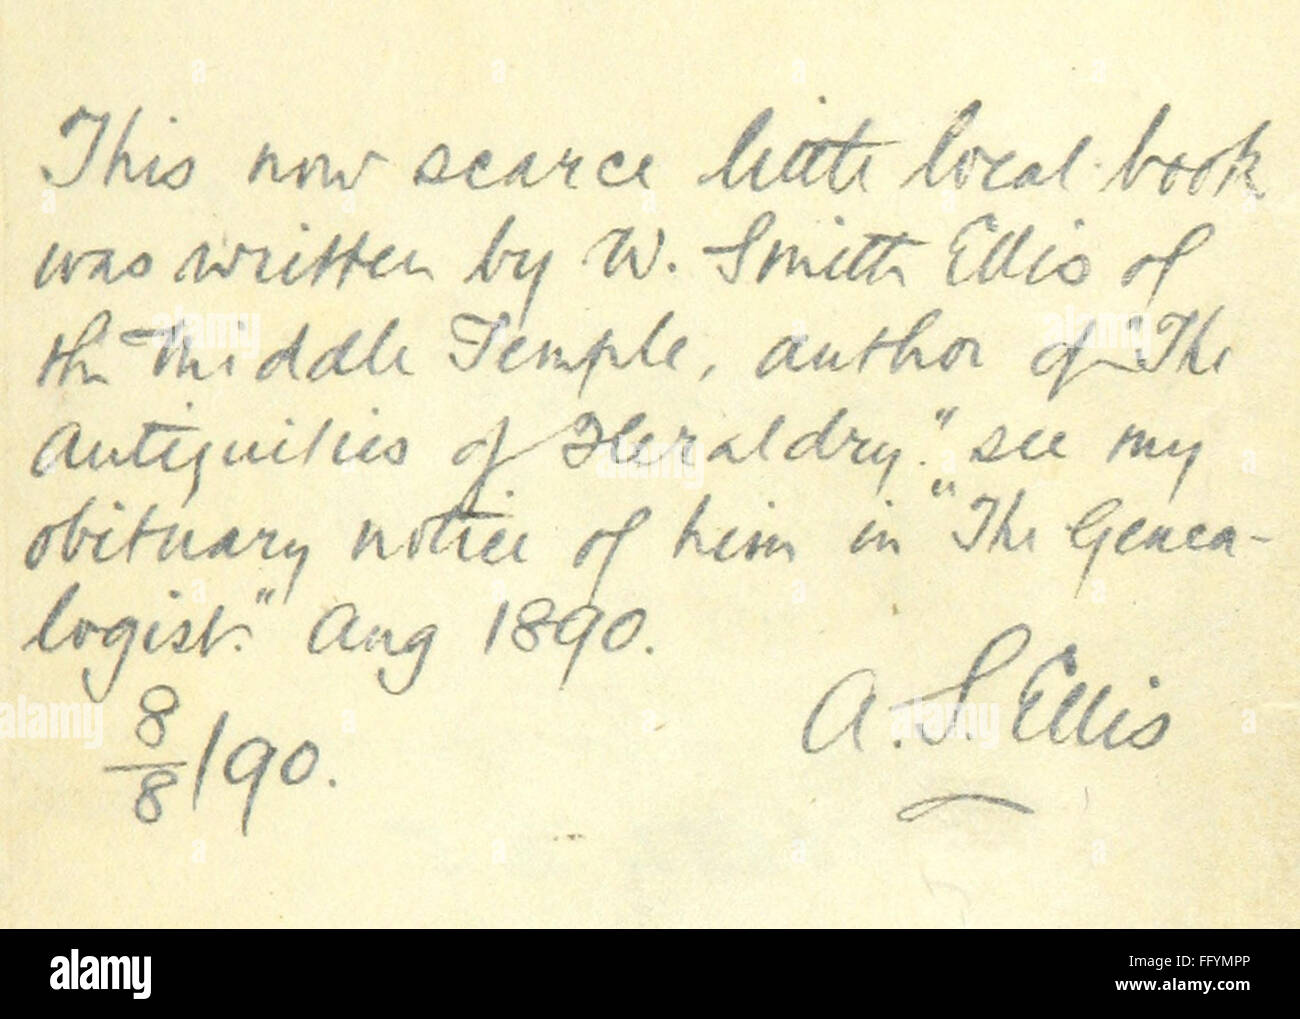 This now scarce little local book
was written by W. Smith Ellis of
the Middle Temple, author of "The
Antiquities of Heraldry." see my
obituary notice of him in "The Genea-
logist." Aug 1890.
8/8/90.
A. S. Ellis
alamy
Image ID: FFYMPP
www.alamy.com